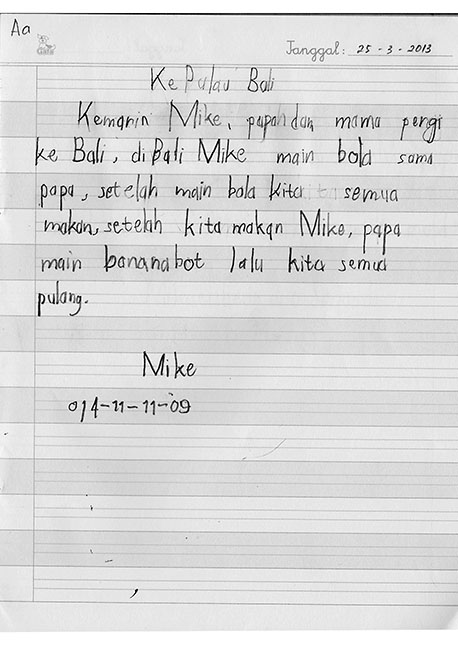 Aa
Tanggal: 25-3-2013
Ke Pulau Bali
Kemanin Mike, papah dan mama pengi
ke Bali, di Bali Mike main bola sama
papa, setelah main bola kita semua
makan, setelah kita makan Mike, papa
main bananabot lalu kita semua
pulang.
Mike
014-11-11-09